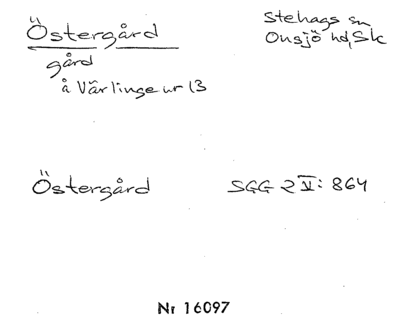 Östergård
Stehags sn
Onsjö hd, Sk
gård
å Värlinge nr 13
Östergård SGG 2 V: 864
Nr 16097